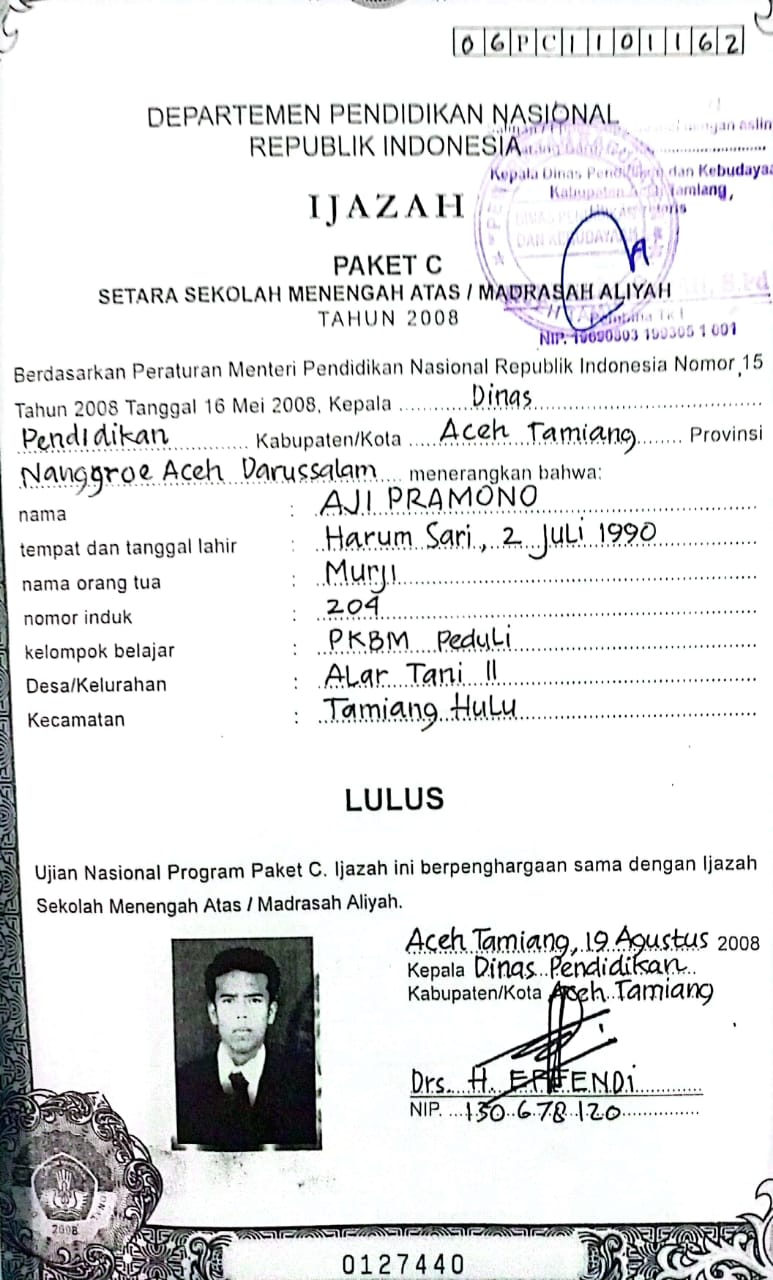 06PC1101162
DEPARTEMEN PENDIDIKAN NASIONAL
REPUBLIK INDONESIA
IJAZAH
dengan aslin
Kepala Dinas dan Kebudayaa
Kabupaten Tamiang,
PAKET C
SETARA SEKOLAH MENENGAH ATAS / MADRASAH ALIYAH
TAHUN 2008
NIP.
Berdasarkan Peraturan Menteri Pendidikan Nasional Republik Indonesia Nomor 15
Tahun 2008 Tanggal 16 Mei 2008, Kepala Dinas
Pendidikan Kabupaten/Kota Aceh Tamiang Provinsi
Nanggroe Aceh Darussalam menerangkan bahwa:
nama : AJI PRAMONO
tempat dan tanggal lahir : Harum Sari, 2 Juli 1990
nama orang tua : Murji
nomor induk : 204
kelompok belajar : PKBM Peduli
Desa/Kelurahan : Alar Tani II
Kecamatan : Tamiang Hulu
LULUS
Ujian Nasional Program Paket C. Ijazah ini berpenghargaan sama dengan Ijazah
Sekolah Menengah Atas / Madrasah Aliyah.
Aceh Tamiang, 19 Agustus 2008
Kepala Dinas Pendidikan
Kabupaten/Kota Aceh Tamiang
Drs. H. EFFENDI
NIP. 130 678 120
2008
0127440